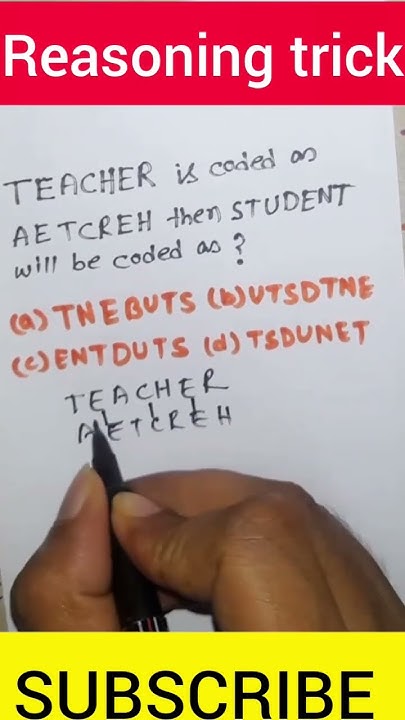 Reasoning trick
TEACHER is coded as
AETCREH then STUDENT
will be coded as ?
(a) TNEBUTS (b) UTSDTNE
(c) ENTDUTS (d) TSDUNET
TEACHER
AETCREH
SUBSCRIBE